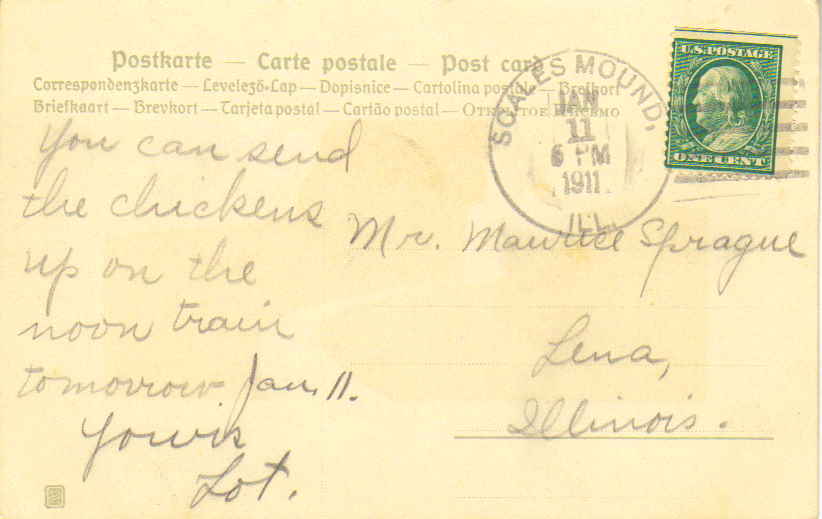 Postkarte — Carte postale — Post card
Correspondenzkarte — Levelező-Lap — Dopisnice — Cartolina postale — Brefkort
Briefkaart — Brevkort — Tarjeta postal — Cartão postal — Открытое письмо
SCALES MOUND, ILL.
JAN
11
6 PM
1911
U.S. POSTAGE
ONE CENT
You can send
the chickens
up on the
noon train
tomorrow Jan. 11.
Yours
Lot.
Mr. Maurice Sprague
Lena,
Illinois.